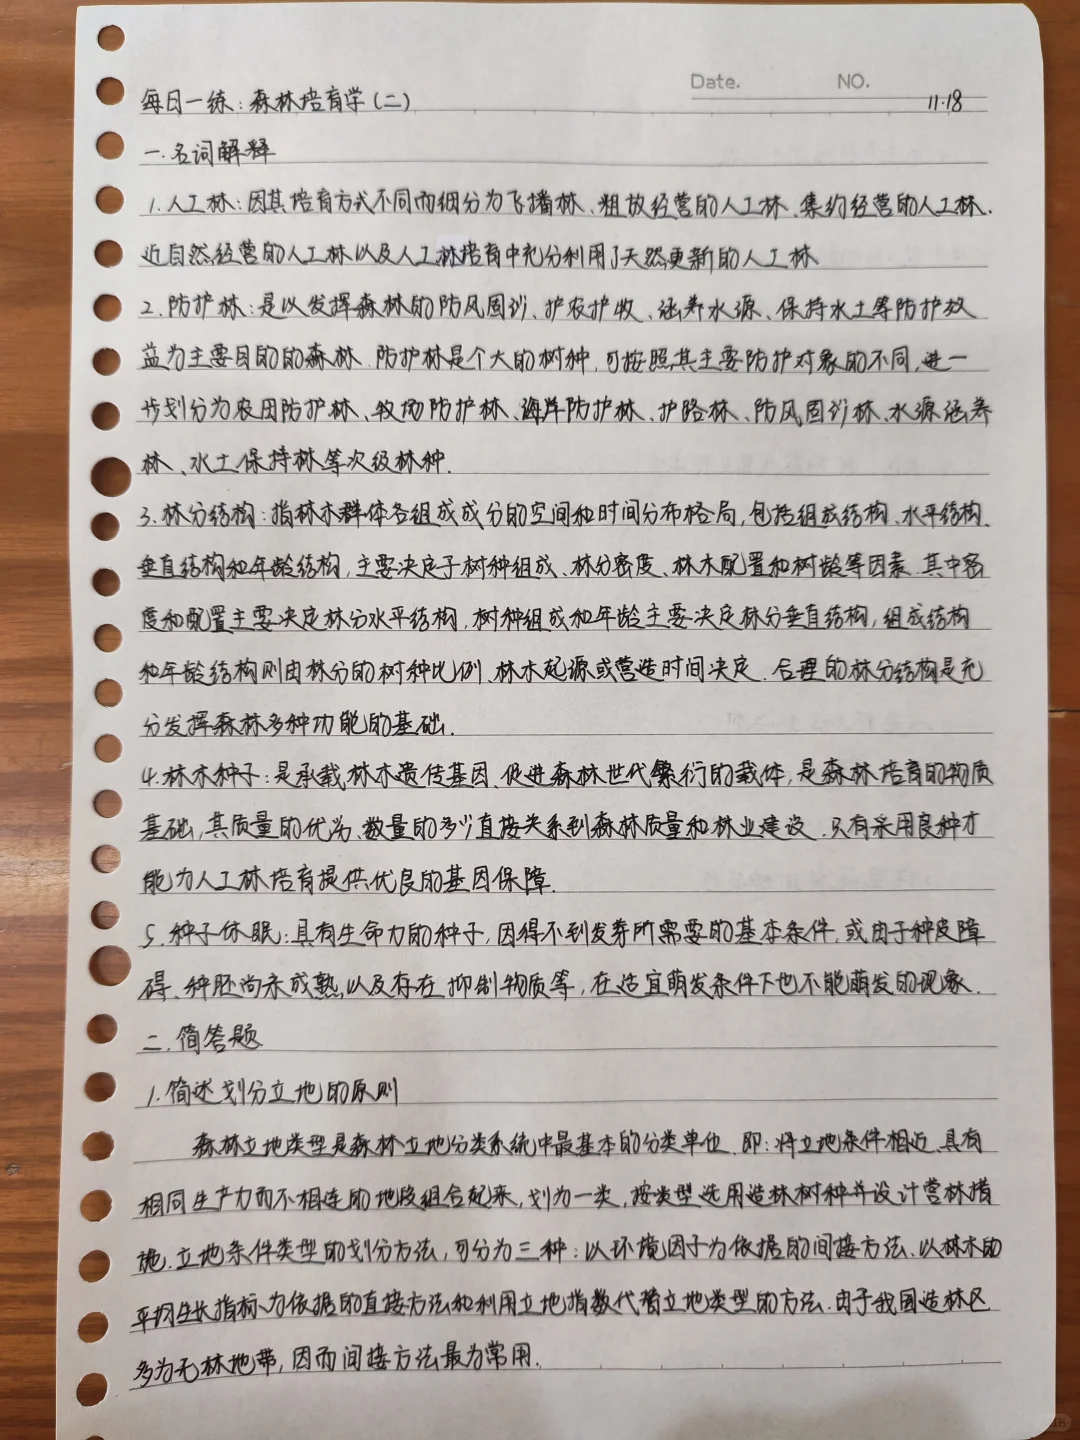 Date.
NO.
11.18
每日一练：森林培育学（二）
一.名词解释
1.人工林：因其培育方式不同而细分为飞播林、粗放经营的人工林、集约经营的人工林、
近自然经营的人工林以及人工林培育中充分利用了天然更新的人工林
2.防护林：是以发挥森林的防风固沙、护农护牧、涵养水源、保持水土等防护效
益为主要目的的森林.防护林是个大的树种，可按照其主要防护对象的不同，进一
步划分为农田防护林、牧场防护林、海岸防护林、护路林、防风固沙林、水源涵养
林、水土保持林等次级林种.
3.林分结构：指林木群体各组成成分的空间和时间分布格局，包括组成结构、水平结构、
垂直结构和年龄结构，主要决定于树种组成、林分密度、林木配置和树龄等因素.其中密
度和配置主要决定林分水平结构，树种组成和年龄主要决定林分垂直结构，组成结构
和年龄结构则由林分的树种比例、林木起源或营造时间决定.合理的林分结构是充
分发挥森林多种功能的基础.
4.林木种子：是承载林木遗传基因、促进森林世代繁衍的载体，是森林培育的物质
基础，其质量的优劣、数量的多少直接关系到森林质量和林业建设.只有采用良种才
能为人工林培育提供优良的基因保障.
5.种子休眠：具有生命力的种子，因得不到发芽所需要的基本条件，或由于种皮障
碍、种胚尚未成熟，以及存在抑制物质等，在适宜萌发条件下也不能萌发的现象.
二.简答题
1.简述划分立地的原则
森林立地类型是森林立地分类系统中最基本的分类单位.即：将立地条件相近、具有
相同生产力而不相连的地段组合起来，划为一类，按类型选用造林树种并设计营林措
施.立地条件类型的划分方法，可分为三种：以环境因子为依据的间接方法、以林木的
平均生长指标为依据的直接方法和利用立地指数代替立地类型的方法.由于我国造林区
多为无林地带，因而间接方法最为常用.